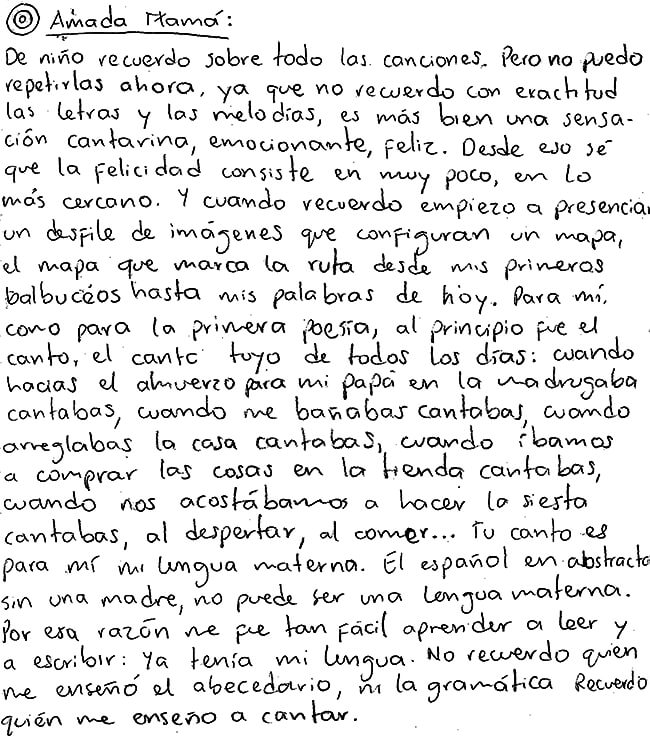 Amada Mamá:
De niño recuerdo sobre todo las canciones. Pero no puedo
repetirlas ahora, ya que no recuerdo con exactitud
las letras y las melodías, es más bien una sensa-
ción cantarina, emocionante, feliz. Desde eso sé
que la felicidad consiste en muy poco, en lo
más cercano. Y cuando recuerdo empiezo a presencia
un desfile de imágenes que configuran un mapa,
el mapa que marca la ruta desde mis primeros
balbucéos hasta mis palabras de hoy. Para mí,
como para la primera poesía, al principio fue el
canto, el canto tuyo de todos los días: cuando
hacías el almuerzo para mi papá en la madrugaba
cantabas, cuando me bañabas cantabas, cuando
arreglabas la casa cantabas, cuando íbamos
a comprar las cosas en la tienda cantabas,
cuando nos acostábamos a hacer la siesta
cantabas, al despertar, al comer... Tu canto es
para mí mi lengua materna. El español en abstracto
sin una madre, no puede ser una lengua materna.
Por esa razón me fue tan fácil aprender a leer y
a escribir: ya tenía mi lengua. No recuerdo quien
me enseñó el abecedario, ni la gramática Recuerdo
quién me enseño a cantar.